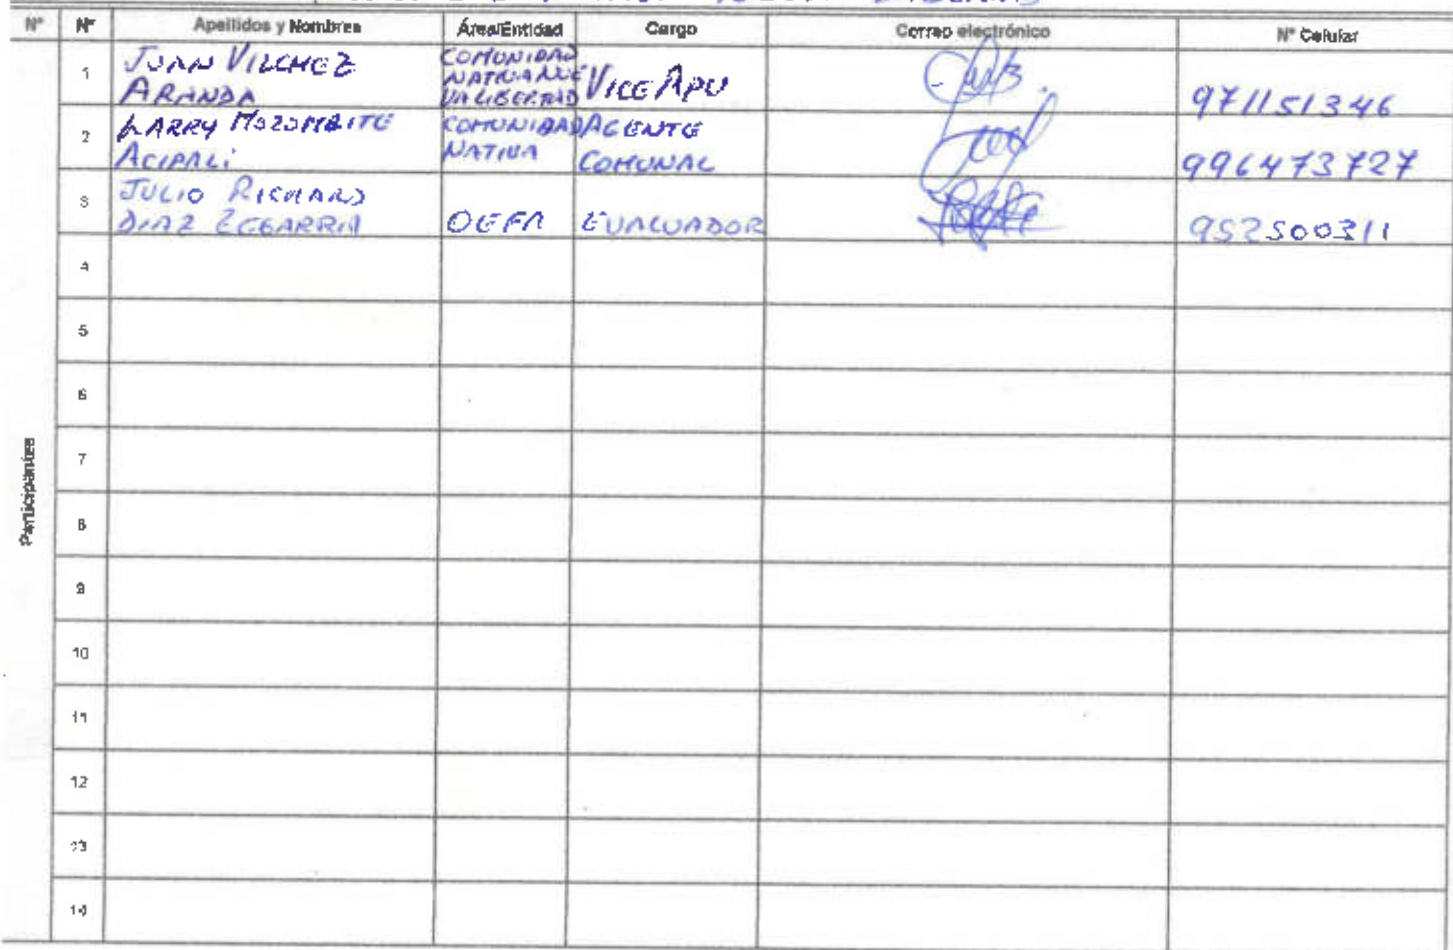 N° N° Apellidos y Nombres Área/Entidad Cargo Correo electrónico N° Celular
1 JUAN VILCHEZ ARANDA COMUNIDAD NATIVA NUEVA LIBERTAD VICE APU 971151346
2 LARRY MOZOMBITE COMUNIDAD NATIVA AGENTE COMUNAL 996473727
3 JULIO RICHARD DIAZ ZEGARRA OEFA EVALUADOR 952500311
4
5
6
7
8
9
10
11
12
13
14
Participantes